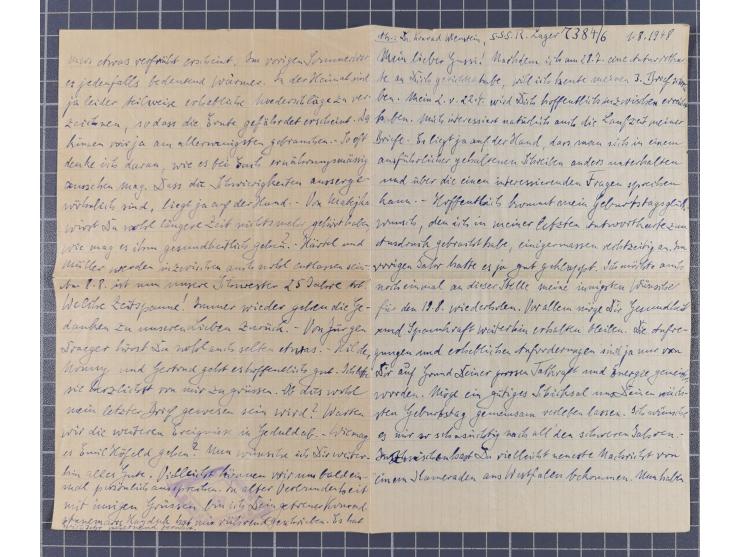 Abs.: Dr. Konrad Wenstein, S.S.S.R. Lager 7384/6 1.8.1948
Mein lieber Gussi! Nachdem ich am 28.7. eine Antwortkar-
te an Dich gerichtet habe, will ich heute meinen 3. Brief
ben. Mein 2. v. 22.4. wird Dich hoffentlich inzwischen erreicht
haben. Mich interessiert natürlich auch die Laufzeit meiner
Briefe. Es liegt ja auf der Hand, dass man sich in einem
ausführlicher gehaltenen Schreiben anders unterhalten
und über die einen interessierenden Fragen sprechen
kann. - Hoffentlich kommt mein Geburtstagsglück-
wunsch, den ich in meiner letzten Antwortkarte zum
Ausdruck gebracht habe, einigermassen rechtzeitig an. Im
vorigen Jahr hatte es ja gut geklappt. Ich möchte auch
noch einmal an dieser Stelle meine innigsten Wünsche
für den 19.8. wiederholen. Vor allem möge Dir Gesundheit
und Spannkraft weiterhin erhalten bleiben. Die Aufre-
gungen und erheblichen Anforderungen sind ja nur von
Dir auf Grund Deiner grossen Tatkraft und Energie gemeistert
worden. Mög ein gütiges Schicksal uns Deinen näch-
sten Geburtstag gemeinsam verleben lassen. Ich wünsche
es mir so sehnsüchtig nach all' den schweren Jahren. -
Inzwischen hast Du vielleicht neueste Nachricht von
einem Kameraden aus Westfalen bekommen. Nun halten
etwas verfrüht erscheint. Im vorigen Sommer war
es jedenfalls bedeutend wärmer. In der Heimat sind
ja leider teilweise erhebliche Niederschläge zu ver-
zeichnen, sodass die Ernte gefährdet erscheint. Das
können wir ja am allerwenigsten gebrauchen. - So oft
denke ich daran, wie es bei Euch ernährungsmässig
ausschen mag. Dass die Schwierigkeiten ausserge-
wöhnlich sind, liegt ja auf der Hand. - Von
wirst Du wohl längere Zeit nichts mehr gehört haben
wie mag es ihm gesundheitlich gehn? - Härtel und
Müller werden inzwischen auch wohl entlassen sein. -
Am 8.8. ist nun unsere Schwester 25 Jahre tot.
Welche Zeitspanne! Immer wieder gehen die Ge-
danken zu unseren Lieben zurück. - Von Jürgen
Draeger hörst Du wohl auch selten etwas. - Hilde,
Nonny und Gertrud geht es hoffentlich gut. Ich bitte
sie herzlichst von mir zu grüssen. Ob dies wohl
mein letzter Brief gewesen sein wird? Warten
wir die weiteren Ereignisse in Geduld ab. - Wie mag
es Emil Hosfeld gehen? Nun wünsche ich Dir weiter-
hin alles Gute. Vielleicht können wir uns bald ein-
mal persönlich aussprechen. In alter Verbundenheit
mit innigen Grüssen bin ich Dein getreuer Konrad
hat mir rührend geschrieben. Es hat